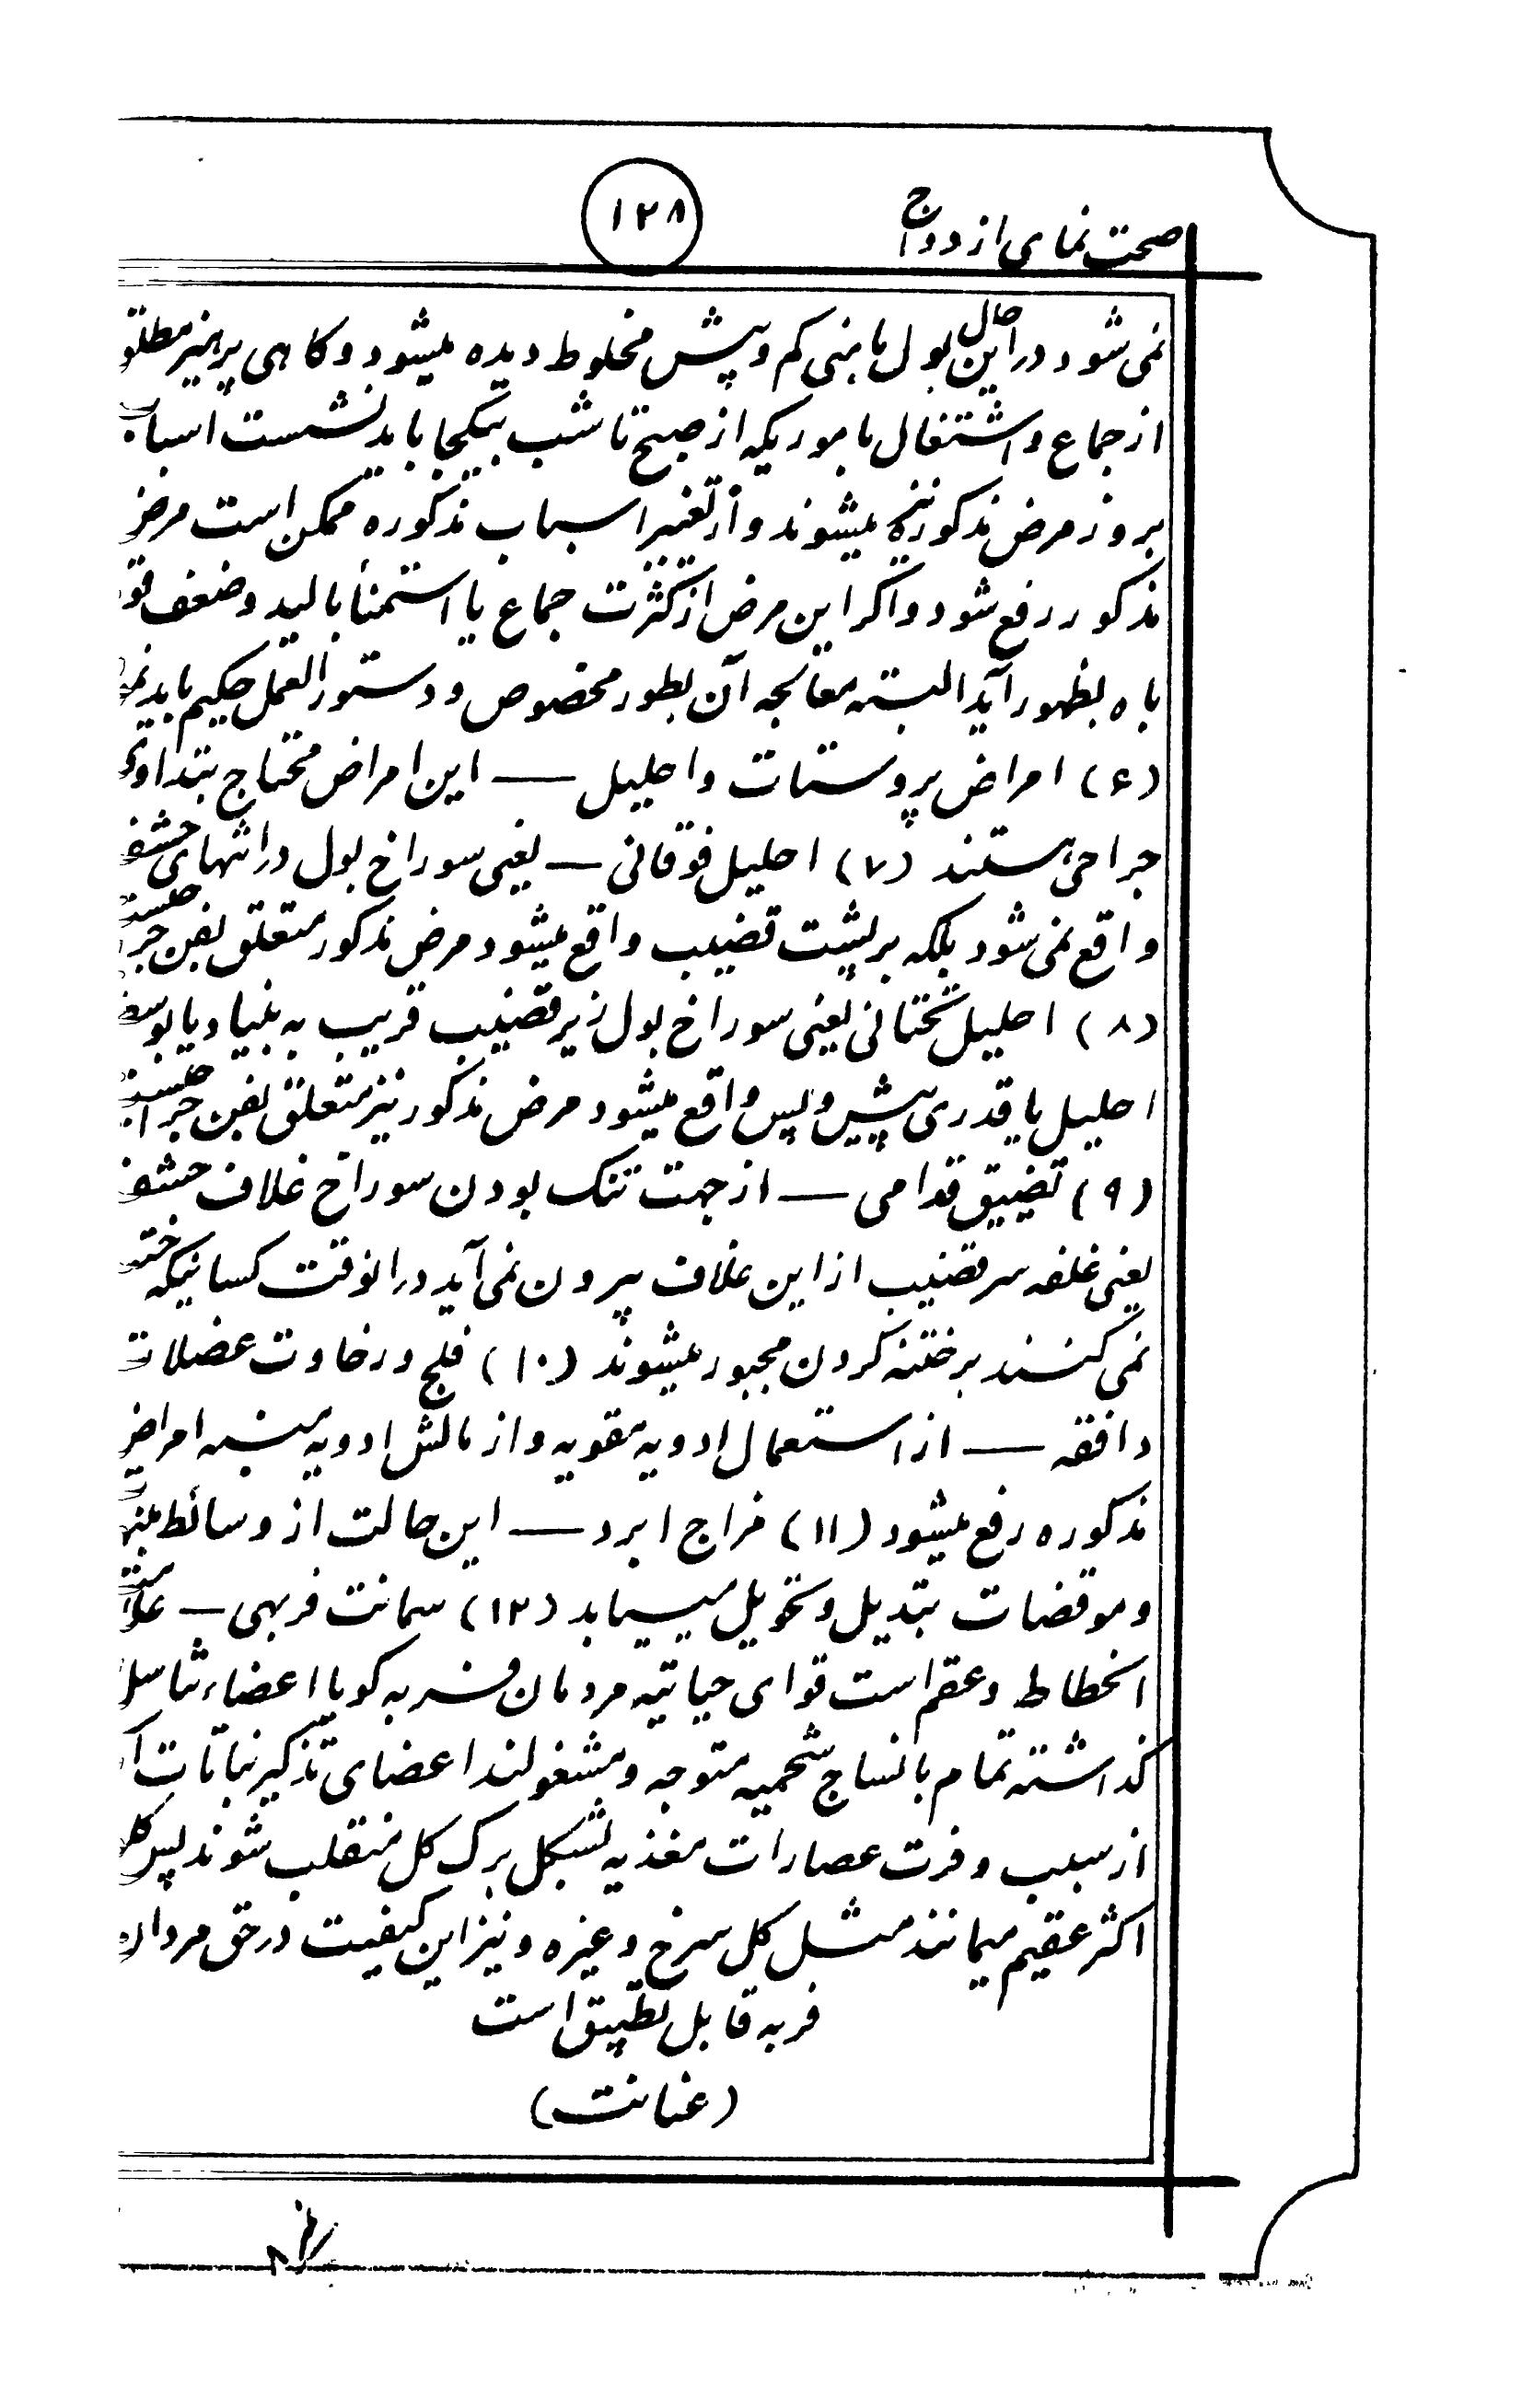 صحت نمای ازدواج
۱۲۸
نمی شود در این حال بول با منی کم و بیش مخلوط دیده میشود و کاهی پرهیز مطلق
از جماع و اشتغال بامور یکه از صبح تا شب بیکجا باید نشست اسباب
بروز مرض مذکور نیز میشوند و از تغییر اسباب مذکوره ممکن است مرض
مذکور رفع شود و اکر این مرض از کثرت جماع یا استمنأ بالید و ضعف قوه
باه بظهور آید البته معالجه آن بطور مخصوص و دستور العمل حکیم باید نمود
(۶) امراض پروستات و احلیل — این امراض محتاج بتداوی
جراحی هستند (۷) احلیل فوقانی — یعنی سوراخ بول در انتهای حشفه
واقع نمی شود بلکه بر پشت قضیب واقع میشود مرض مذکور متعلق بفن جراحیست
(۸) احلیل تحتانی یعنی سوراخ بول زیر قضیب قریب به بنیاد یا بوسط
احلیل یا قدری پیش و پس واقع میشود مرض مذکور نیز متعلق بفن جراحیست
(۹) تضییق قدامی — از جهت تنک بودن سوراخ غلاف حشفه
یعنی غلفه سر قضیب از این غلاف بیرون نمی آید در انوقت کسانیکه ختنه
نمی کنند بر ختنه کردن مجبور میشوند (۱۰) فلج و رخاوت عضلات
دافقه — از استعمال ادویه مقویه و از مالش ادویه منبه امراض
مذکوره رفع میشود (۱۱) مزاج ابرد — این حالت از وسائط منبه
و موقضات تبدیل و تحویل میسیابد (۱۲) سمانت فربهی — علامت
انحطاط و عقم است قوای حیاتیه مردمان فربه کویا اعضاء تناسل
کذاشته تمام بانساج شحمیه متوجه و مشغولند اعضای تذکیر نباتات
از سبب وفرت عصارات مغذیه بشکل برک کل منقلب شوند پس کل
اکثر عقیم میمانند مثل کل سرخ و غیره و نیز این کیفیت در حق مردان
فربه قابل تطبیق است
(عنانت)